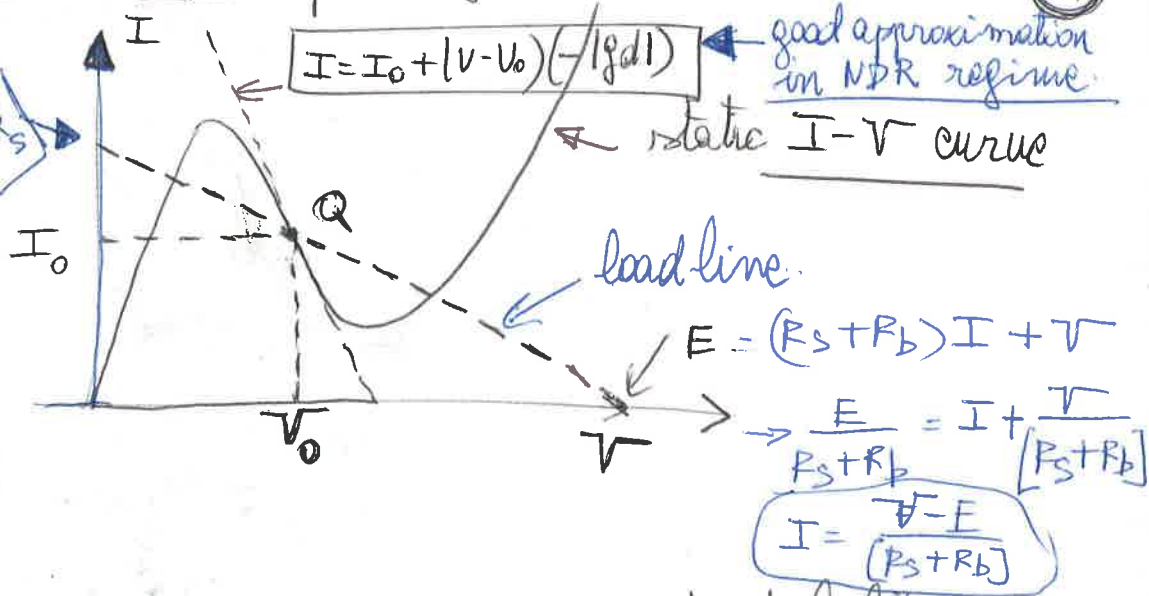 I
I = I₀ + (V - V₀)(-|gd|)
good approximation
in NDR regime.
static I-V curve
s
Q
I₀
load line.
E = (Rs + Rb) I + V
V₀
V
→ E / Rs + Rb = I + V / [Rs + Rb]
I = V - E / [Rs + Rb]